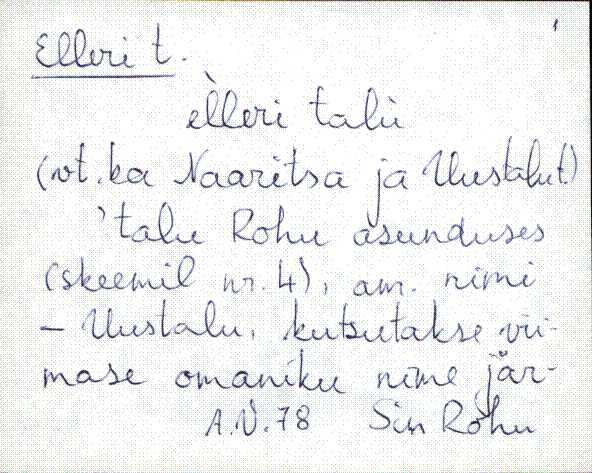 Elleri t.
è̀lleri talu
(vt. ka Naaritsa ja Uustalu t.)
'talu Rohu asunduses
(skeemil nr. 4), am. nimi
– Uustalu, kutsutakse vii-
mase omaniku nime jär-
A.N. 78 Sim Rohu